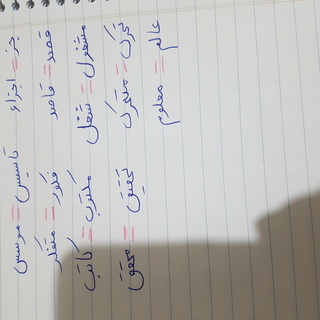 جز = اجزاء تاسیس = موسس
قصد = قاصد فکور = متفکر
مشغول = شغل مکتوب = کاتب
تحرک = متحرک تحقیق = محقق
عالم = معلوم